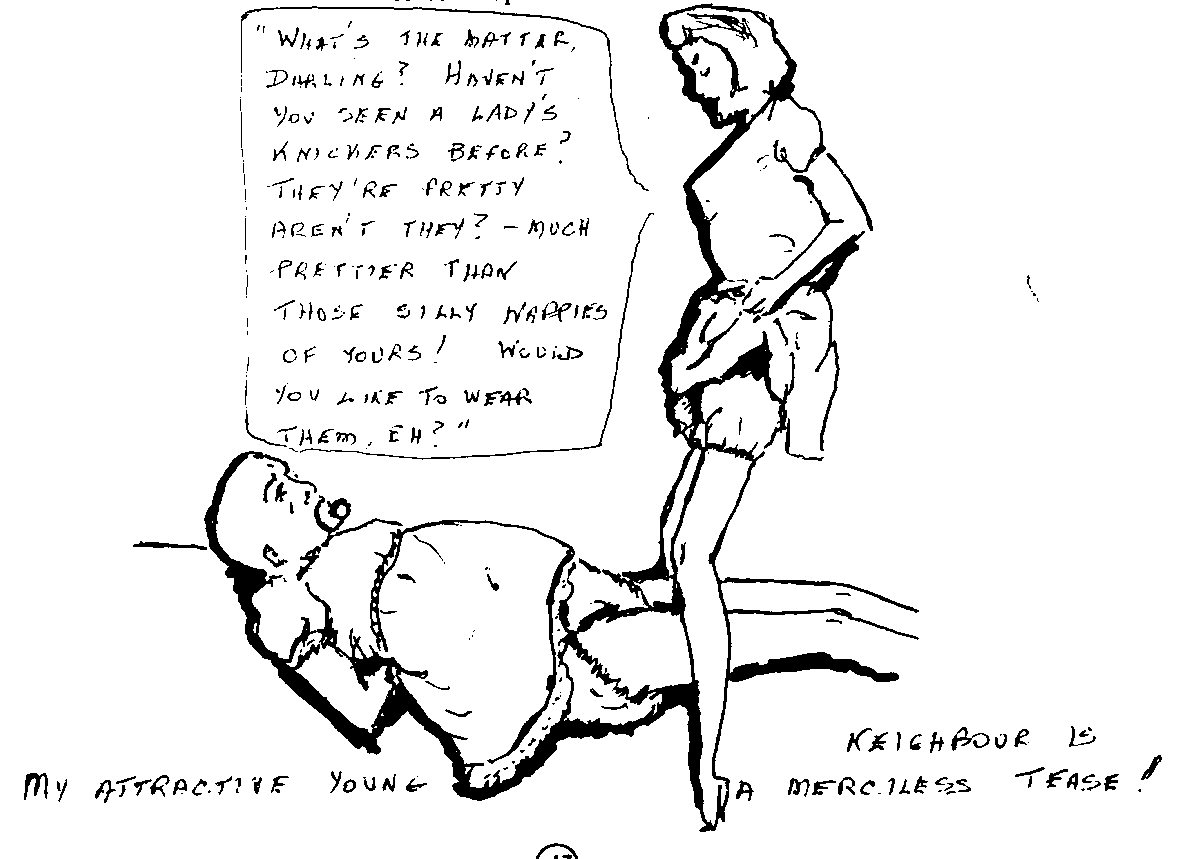 "WHAT'S THE MATTER,
DARLING? HAVEN'T
YOU SEEN A LADY'S
KNICKERS BEFORE?
THEY'RE PRETTY
AREN'T THEY? – MUCH
PRETTIER THAN
THOSE SILLY NAPPIES
OF YOURS! WOULD
YOU LIKE TO WEAR
THEM, EH?"
MY ATTRACTIVE YOUNG
NEIGHBOUR IS
A MERCILESS TEASE!